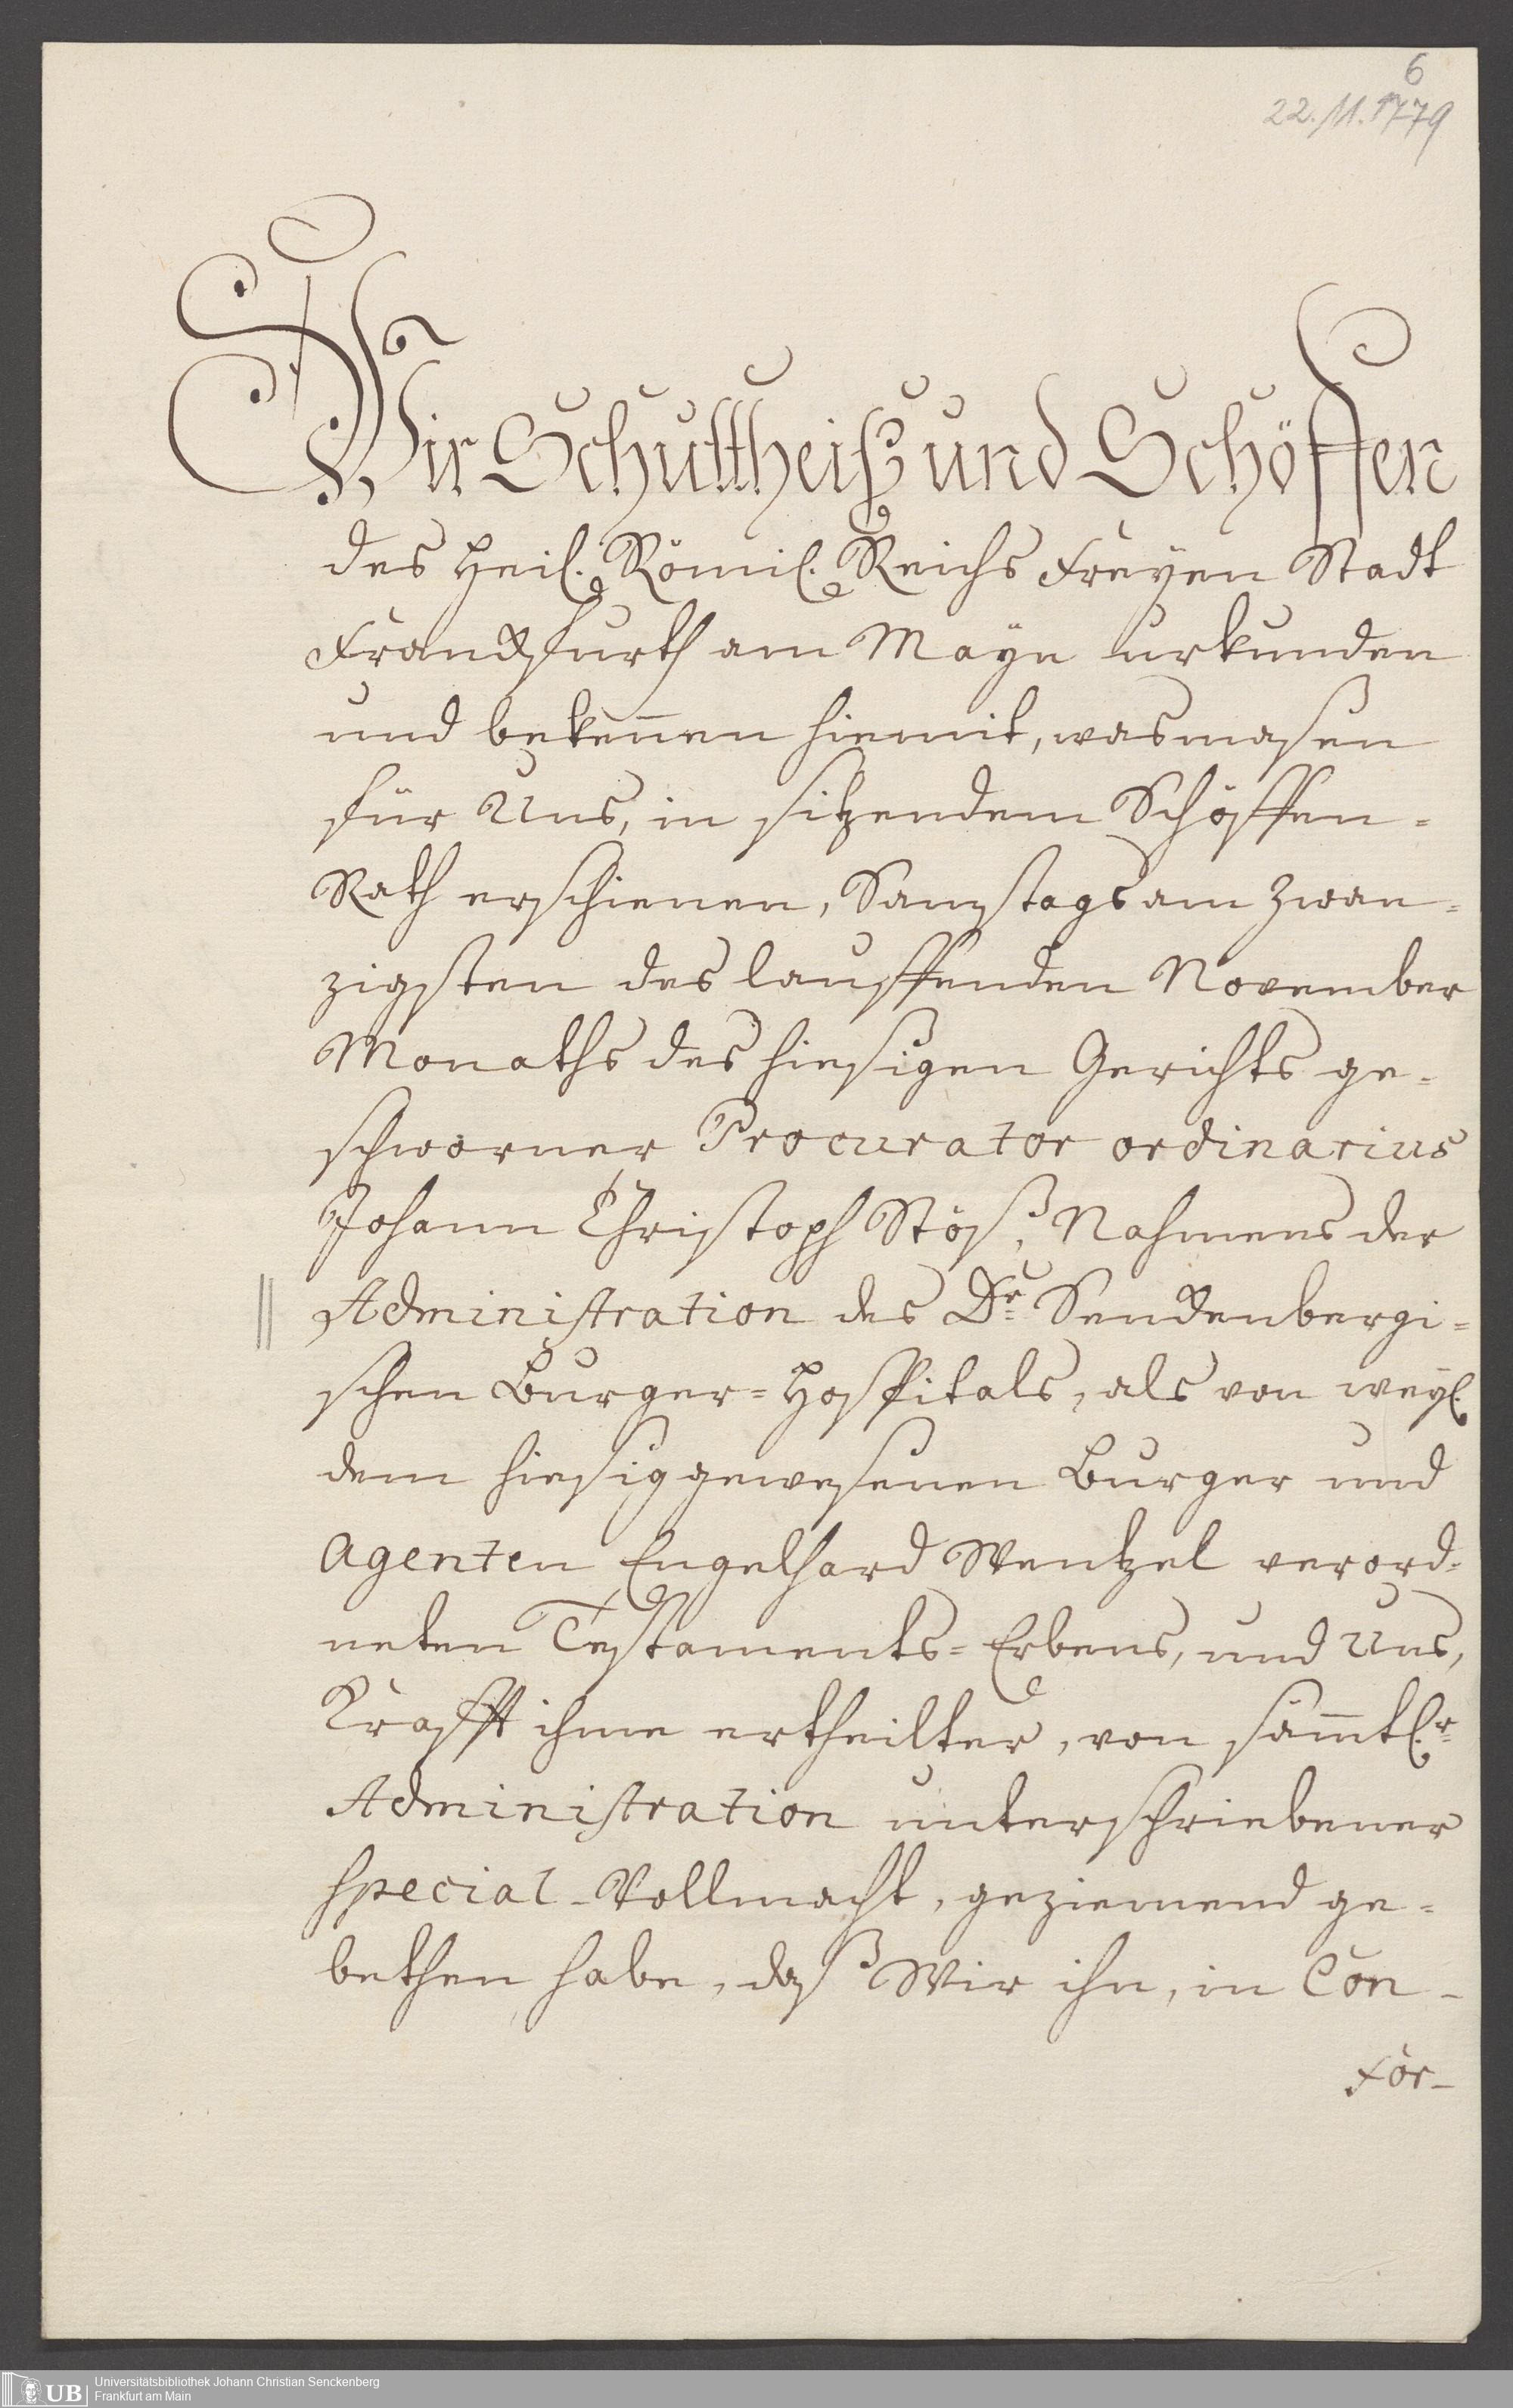 6
22./11.1779
Wir Schultheiß und Schöffen
des Heil. Römil. Reichs Freyen Stadt
Franckfurth am Mayn urkunden
und bekennen hiemit, wasmasen
für Uns, in sitzendem Schöffen=
Rath erschienen, Samstags am zwan=
zigsten des lauffenden November
Monaths des hiesigen Gerichts ge=
schworner Procurator ordinarius
Johann Christoph Stöß, Nahmens der
Administration des Dr. Senckenbergi=
schen Burger=Hospitals, als von weyl.
dem hiesig gewesenen Burger und
Agenten Engelhard Wentzel verord=
neten Testaments=Erbens, und Uns,
Krafft ihme ertheilter, von sämtl.r
Administration unterschriebener
special-Vollmacht, geziemend ge=
bethen habe, daß Wir ihn, in Con-
for-
UB
Universitätsbibliothek Johann Christian Senckenberg
Frankfurt am Main